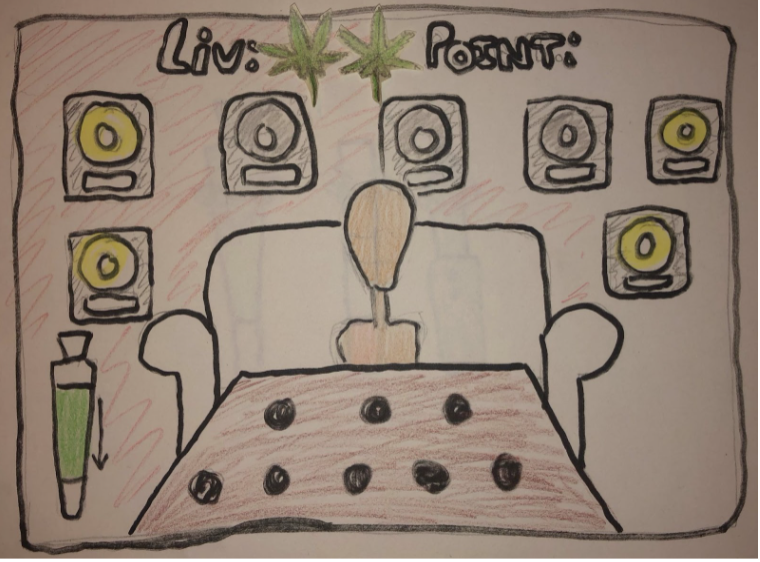 Liv: POINT: